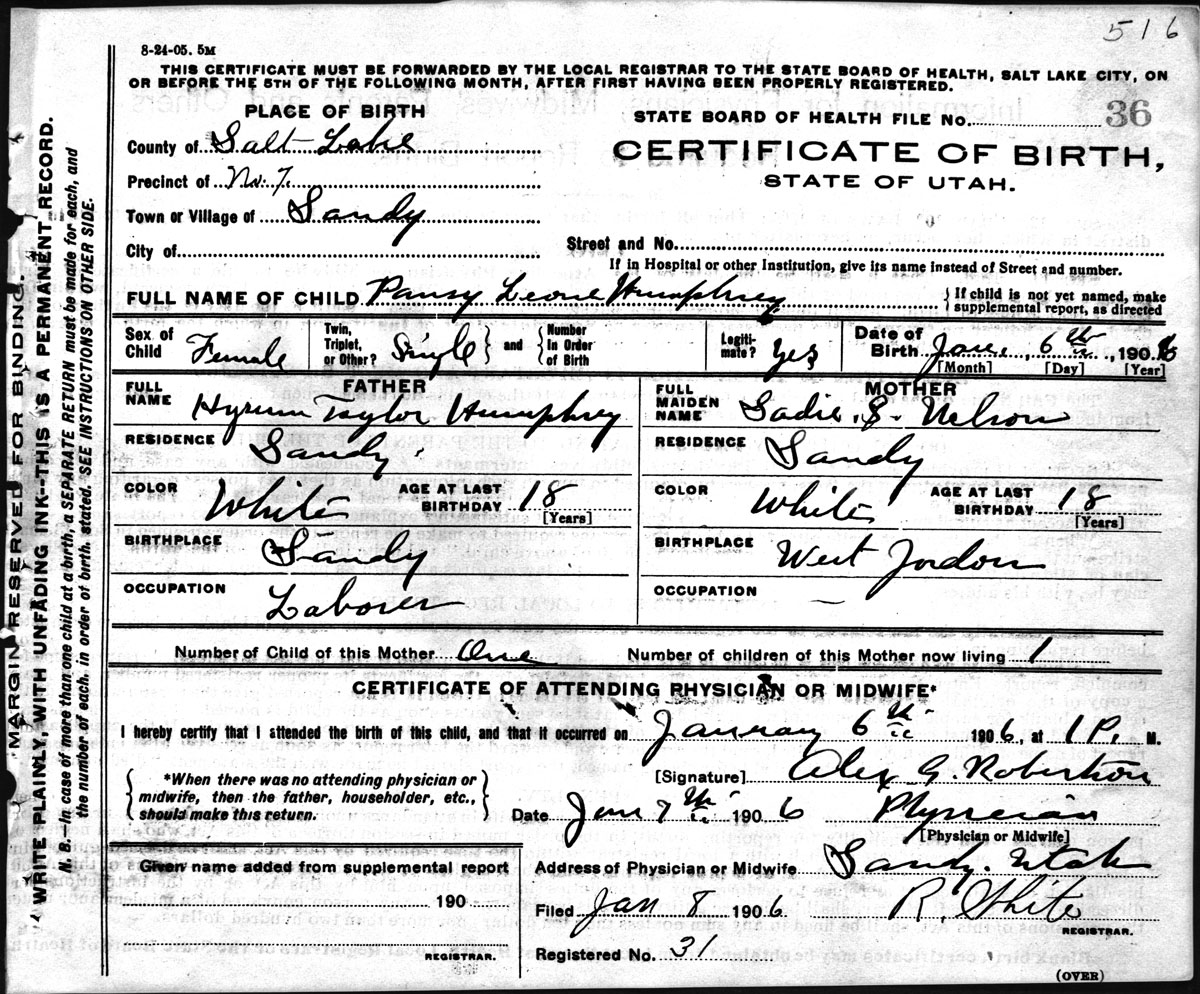 516
8-24-05. 5M
THIS CERTIFICATE MUST BE FORWARDED BY THE LOCAL REGISTRAR TO THE STATE BOARD OF HEALTH, SALT LAKE CITY, ON
OR BEFORE THE 5TH OF THE FOLLOWING MONTH, AFTER FIRST HAVING BEEN PROPERLY REGISTERED.
PLACE OF BIRTH
STATE BOARD OF HEALTH FILE No. 36
County of Salt Lake
CERTIFICATE OF BIRTH,
STATE OF UTAH.
Precinct of No. 7.
Town or Village of Sandy
City of
Street and No.
If in Hospital or other Institution, give its name instead of Street and number.
FULL NAME OF CHILD Pansy Leone Humphrey { If child is not yet named, make
supplemental report, as directed
Sex of Child Female
Twin, Triplet, or Other? Single } and { Number In Order of Birth
Legiti-mate? Yes
Date of Birth Jan. 6th, 1906
[Month] [Day] [Year]
FATHER
FULL NAME Hyrum Taylor Humphrey
RESIDENCE Sandy
COLOR White AGE AT LAST BIRTHDAY 18
[Years]
BIRTHPLACE Sandy
OCCUPATION Laborer
MOTHER
FULL MAIDEN NAME Sadie S. Nelson
RESIDENCE Sandy
COLOR White AGE AT LAST BIRTHDAY 18
[Years]
BIRTHPLACE West Jordon
OCCUPATION —
Number of Child of this Mother One Number of children of this Mother now living 1
CERTIFICATE OF ATTENDING PHYSICIAN OR MIDWIFE*
I hereby certify that I attended the birth of this child, and that it occurred on January 6th 1906, at 1 P. M.
{ *When there was no attending physician or
midwife, then the father, householder, etc.,
should make this return. }
[Signature] Alex G. Robertson
Date Jan 7th 1906 Physician
[Physician or Midwife]
Given name added from supplemental report
190
REGISTRAR.
Address of Physician or Midwife Sandy. Utah
Filed Jan 8 1906 R. White
REGISTRAR.
Registered No. 31
(OVER)
MARGIN RESERVED FOR BINDING.
WRITE PLAINLY, WITH UNFADING INK--THIS IS A PERMANENT RECORD.
N. B.—In case of more than one child at a birth, a SEPARATE RETURN must be made for each, and
the number of each, in order of birth, stated. SEE INSTRUCTIONS ON OTHER SIDE.